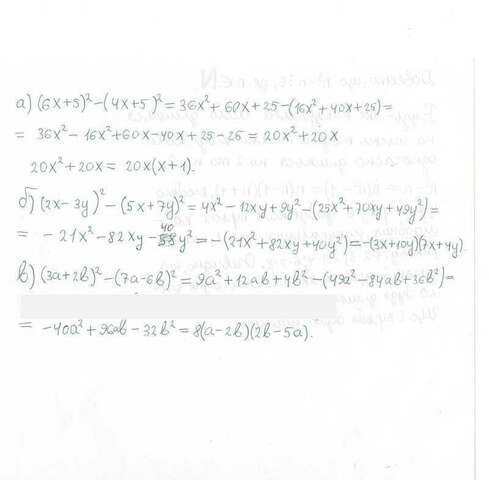 а) (6x+5)²-(4x+5)²=36x²+60x+25-(16x²+40x+25)=
= 36x²-16x²+60x-40x+25-25=20x²+20x
20x²+20x=20x(x+1).
б) (2x-3y)²-(5x+7y)²=4x²-12xy+9y²-(25x²+70xy+49y²)=
= -21x²-82xy-40y²=-(21x²+82xy+40y²)=-(3x+10y)(7x+4y).
в) (3a+2b)²-(7a-6b)²=9a²+12ab+4b²-(49a²-84ab+36b²)=
= -40a²+96ab-32b²=8(a-2b)(2b-5a).